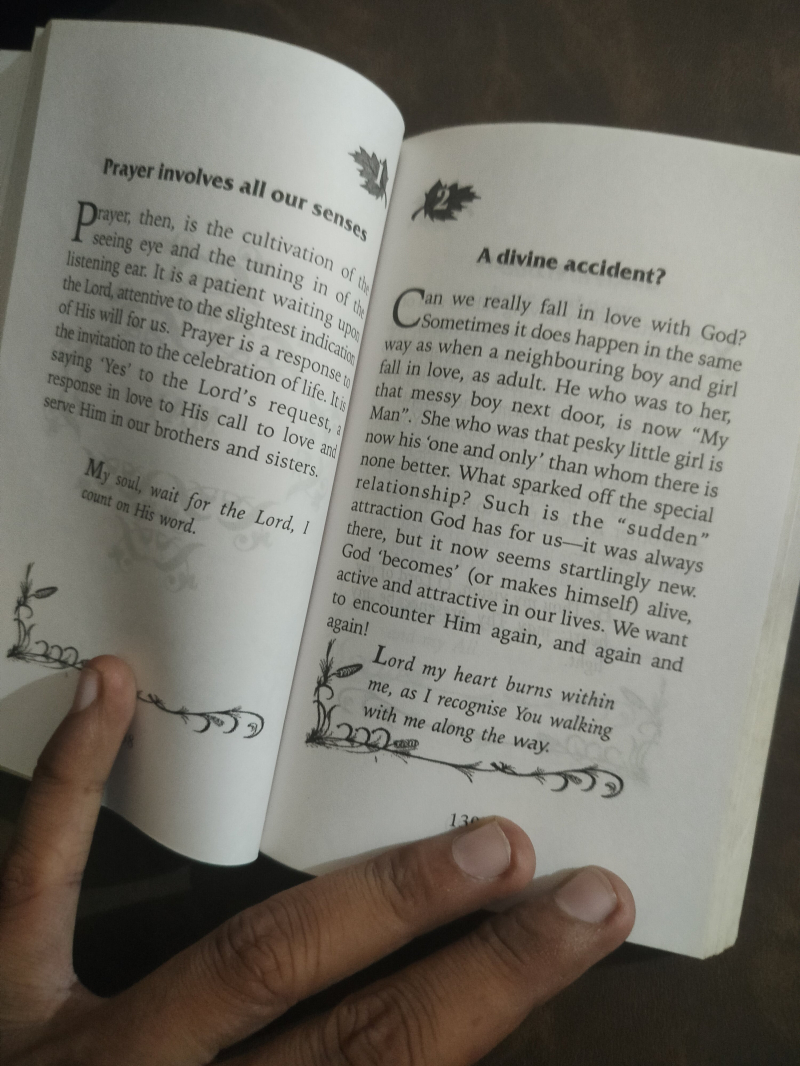 1
Prayer involves all our senses
Prayer, then, is the cultivation of the
seeing eye and the tuning in of the
listening ear. It is a patient waiting upon
the Lord, attentive to the slightest indication
of His will for us. Prayer is a response to
the invitation to the celebration of life. It is
saying ‘Yes’ to the Lord’s request, a
response in love to His call to love and
serve Him in our brothers and sisters.
My soul, wait for the Lord, I
count on His word.
2
A divine accident?
Can we really fall in love with God?
Sometimes it does happen in the same
way as when a neighbouring boy and girl
fall in love, as adult. He who was to her,
that messy boy next door, is now “My
Man”. She who was that pesky little girl is
now his ‘one and only’ than whom there is
none better. What sparked off the special
relationship? Such is the “sudden”
attraction God has for us—it was always
there, but it now seems startlingly new.
God ‘becomes’ (or makes himself) alive,
active and attractive in our lives. We want
to encounter Him again, and again and
again!
Lord my heart burns within
me, as I recognise You walking
with me along the way.